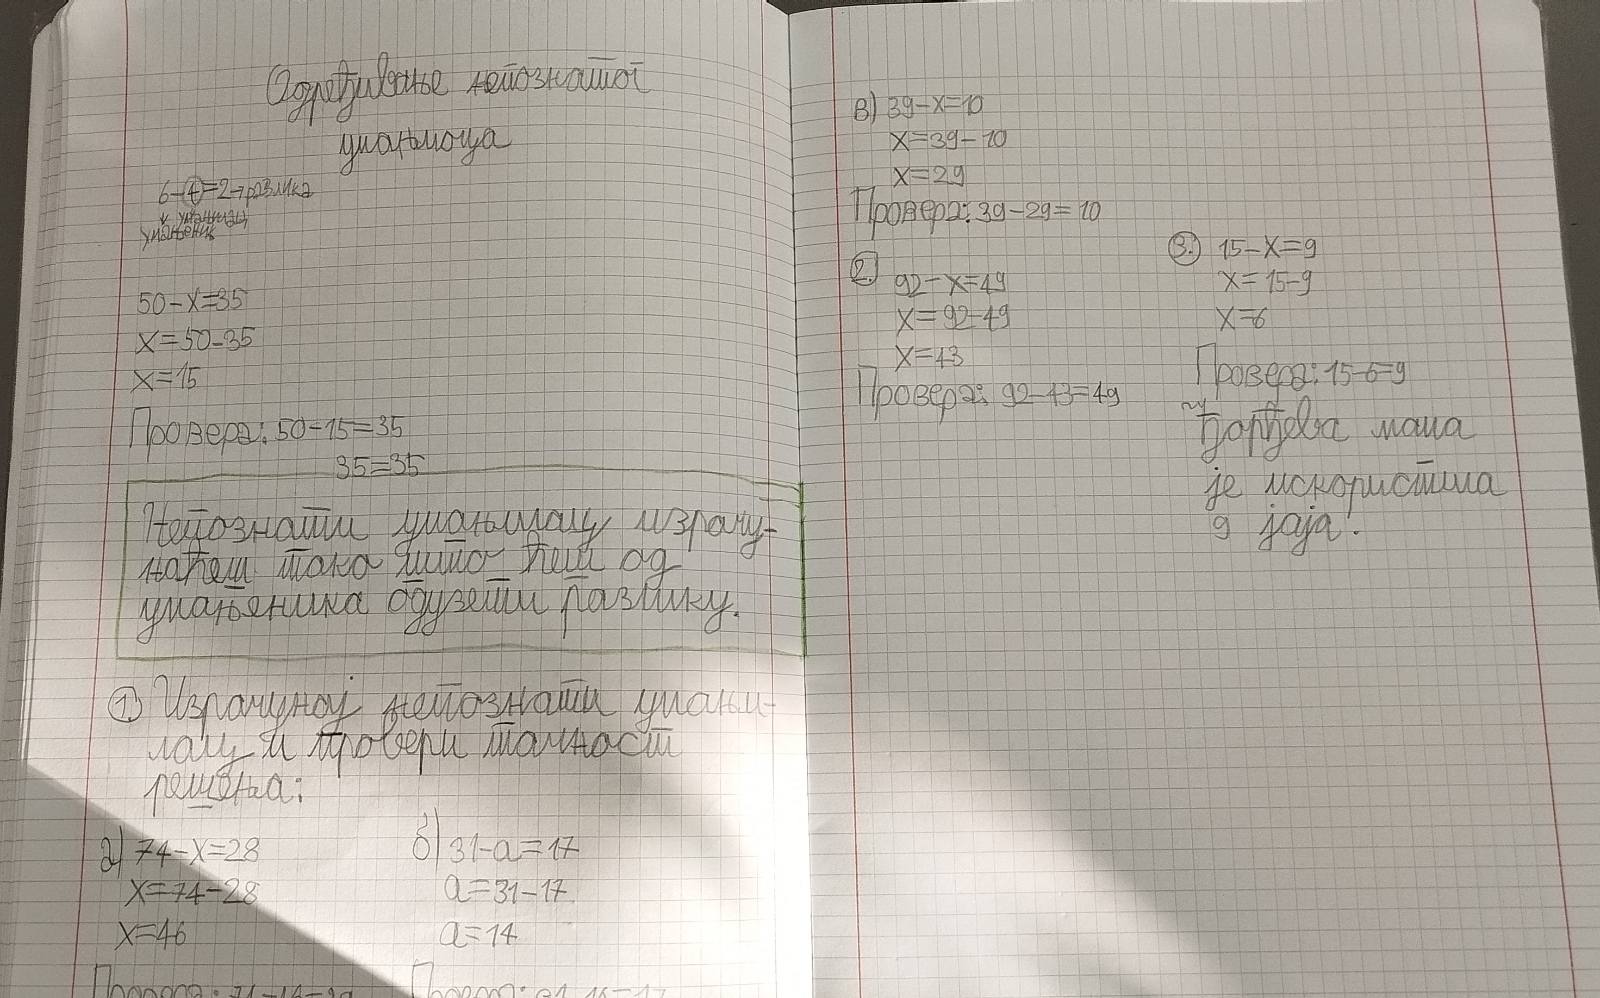 Одређивање непознатог
умањиоца
6-4=2→разлика
умањилац
умањеник
50-x=35
x=50-35
x=15
Провера: 50-15=35
35=35
Непознати умањилац израчу-
наћеш тако што ћеш од
умањеника одузети разлику.
1. Израчунај непознати умањи-
лац и провери тачност
решења:
а) 74-x=28
x=74-28
x=46
б) 31-a=17
a=31-17
a=14
в) 39-x=10
x=39-10
x=29
Провера: 39-29=10
2. 92-x=49
x=92-49
x=43
Провера: 92-43=49
3. 15-x=9
x=15-9
x=6
Провера: 15-6=9
Ђорђева мама
је искористила
9 јаја.